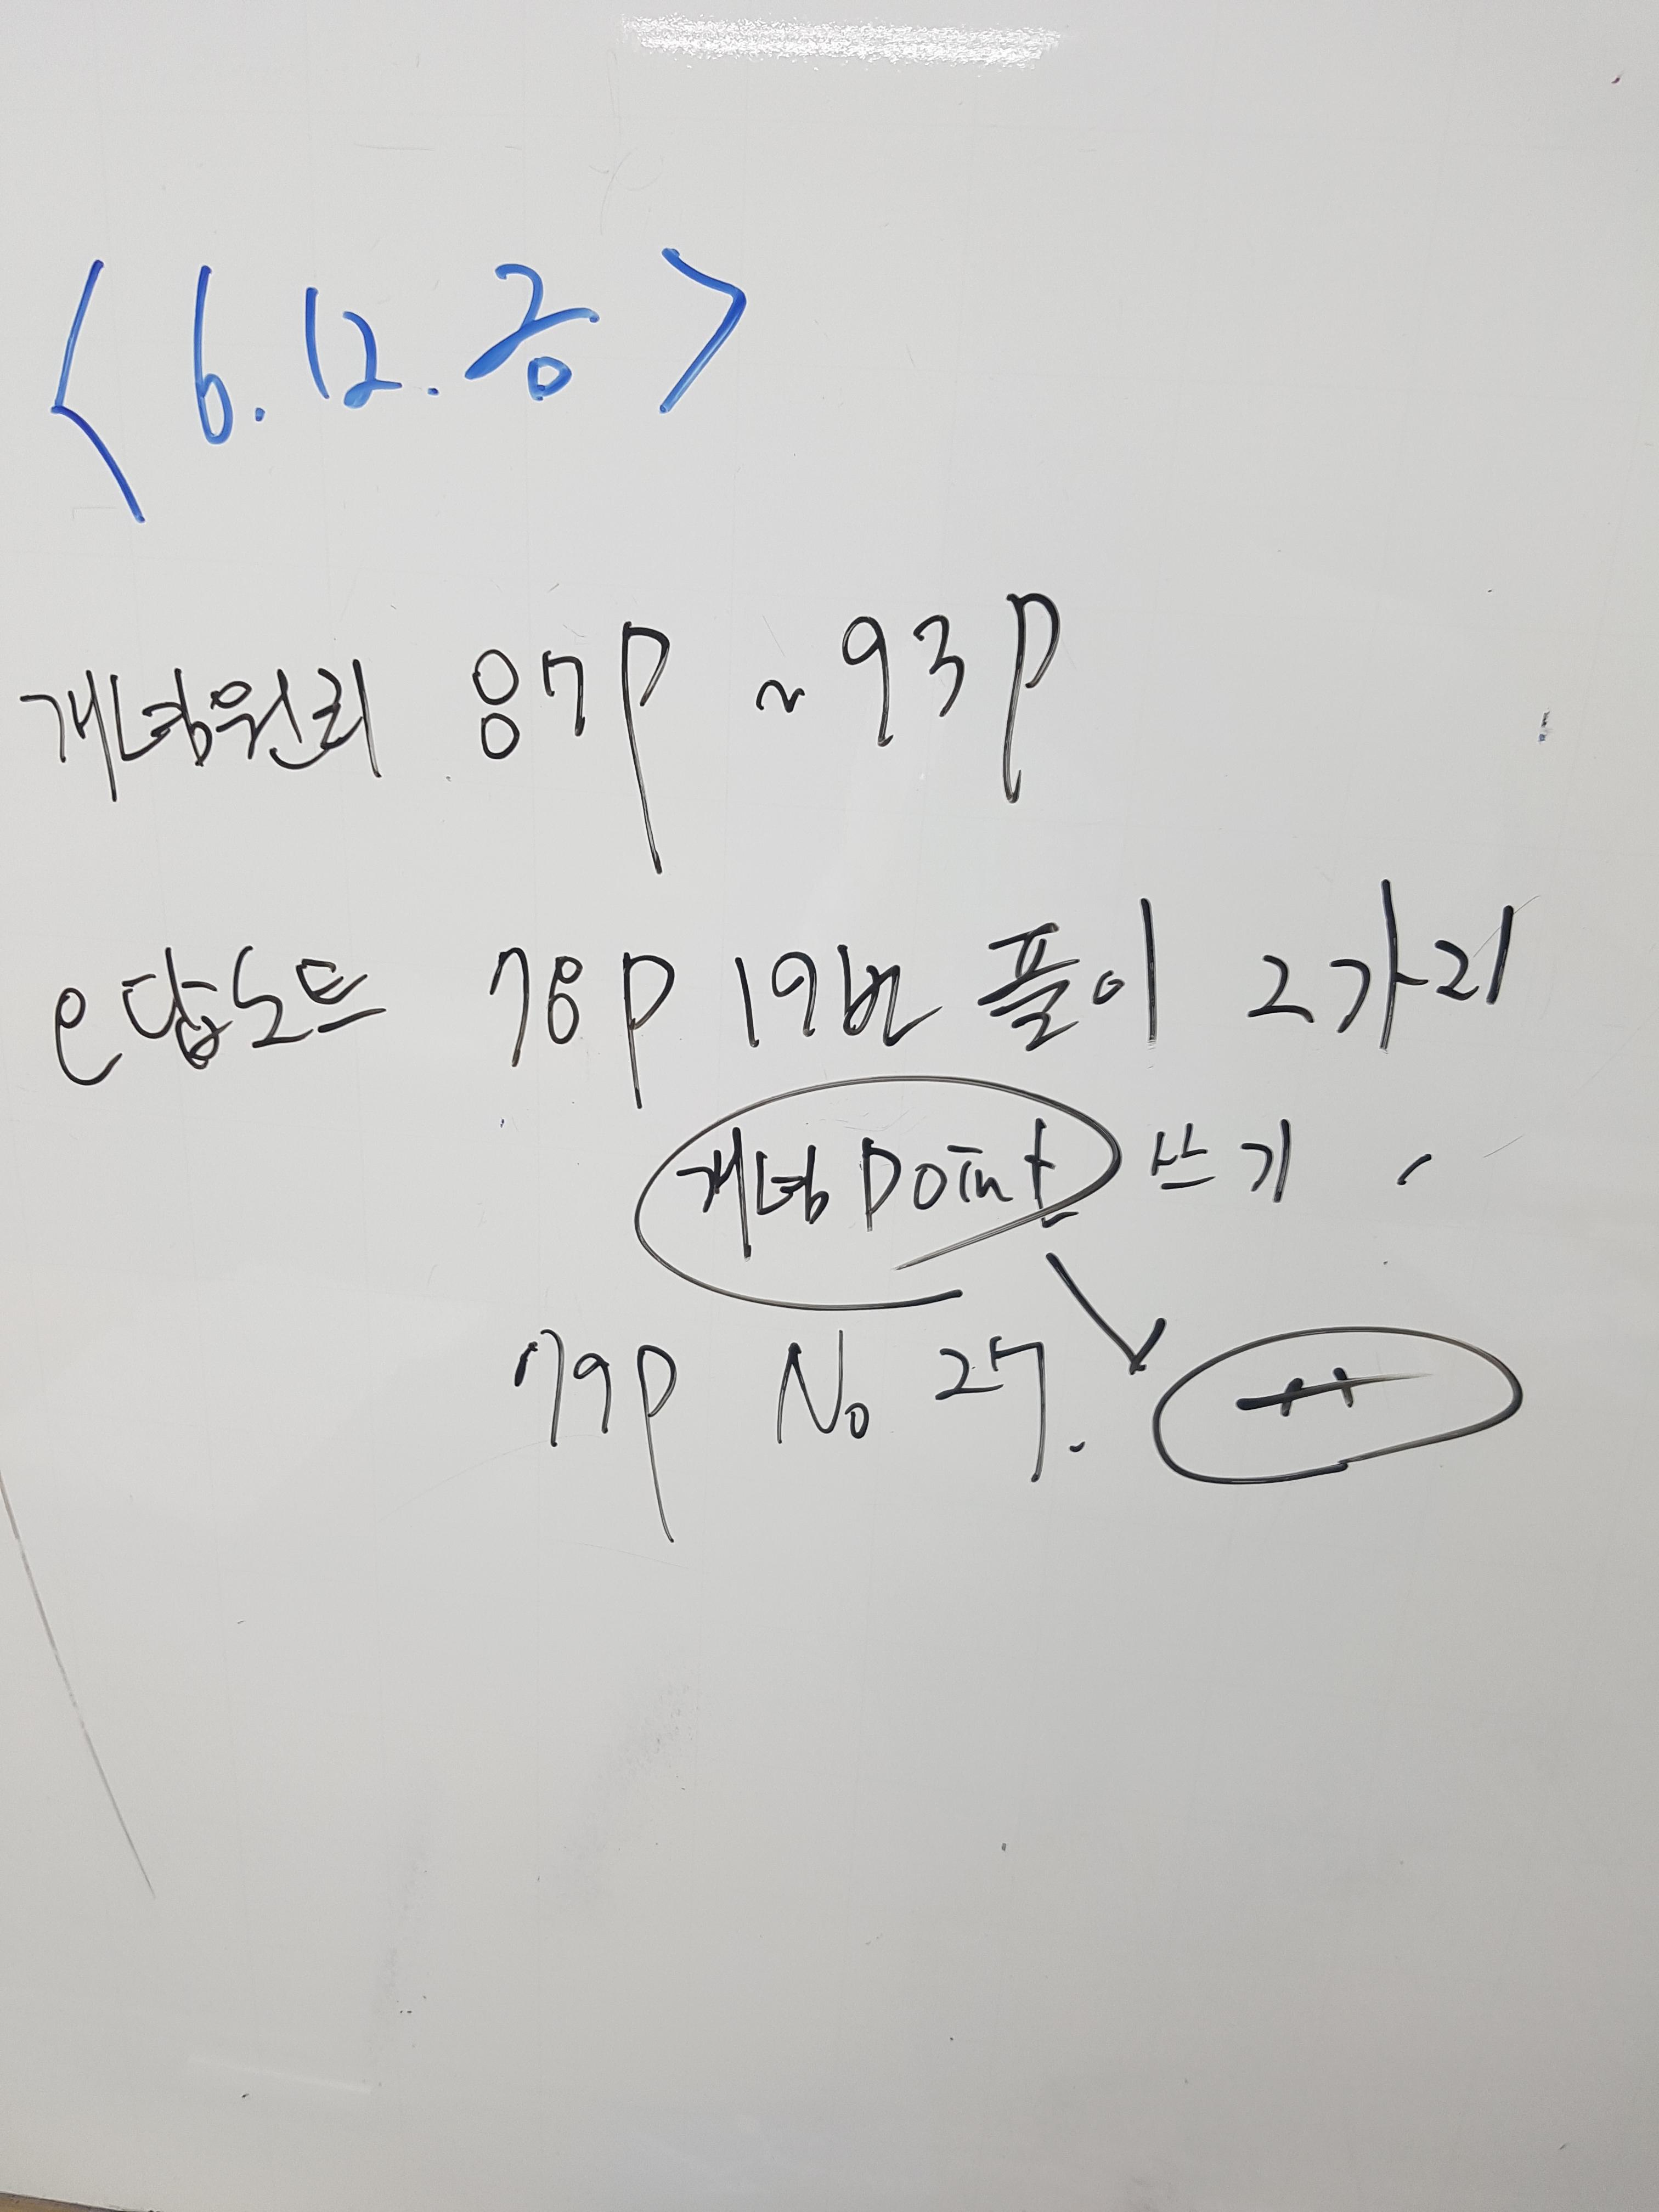 < 6.12.금 >
개념원리 87p ~ 93p
e답노트 78p 19번 풀이 2가지
개념 Point 쓰기
79p No 27.